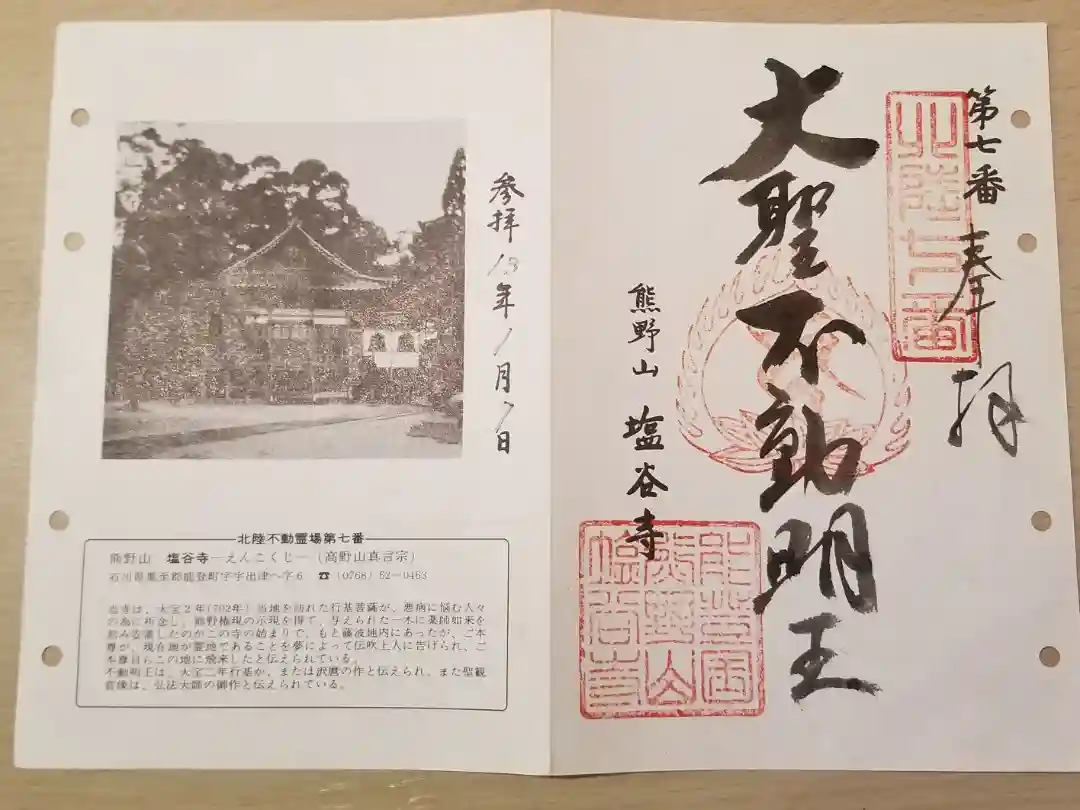 第七番 奉拝
大聖不動明王
熊野山 塩谷寺
北陸七番
参拝 13年1月7日
北陸不動霊場第七番
熊野山 塩谷寺―えんこくじ―(高野山真言宗)
石川県鳳至郡能登町字宇出津ヘ字6 ☎(0768)62―0463
当寺は、大宝2年(702年)当地を訪れた行基菩薩が、悪病に悩む人々
の為に祈念し、熊野権現の示現を得て、与えられた一木に薬師如来を
刻み安置したのがこの寺の始まりで、もと藤波地内にあったが、ご本
尊が、現在地が霊地であることを夢によって伝吹上人に告げられ、ご
本尊自らこの地に飛来したと伝えられている。
不動明王は、大宝二年行基が、または沢磨の作と伝えられ、また聖観
音像は、弘法大師の御作と伝えられている。